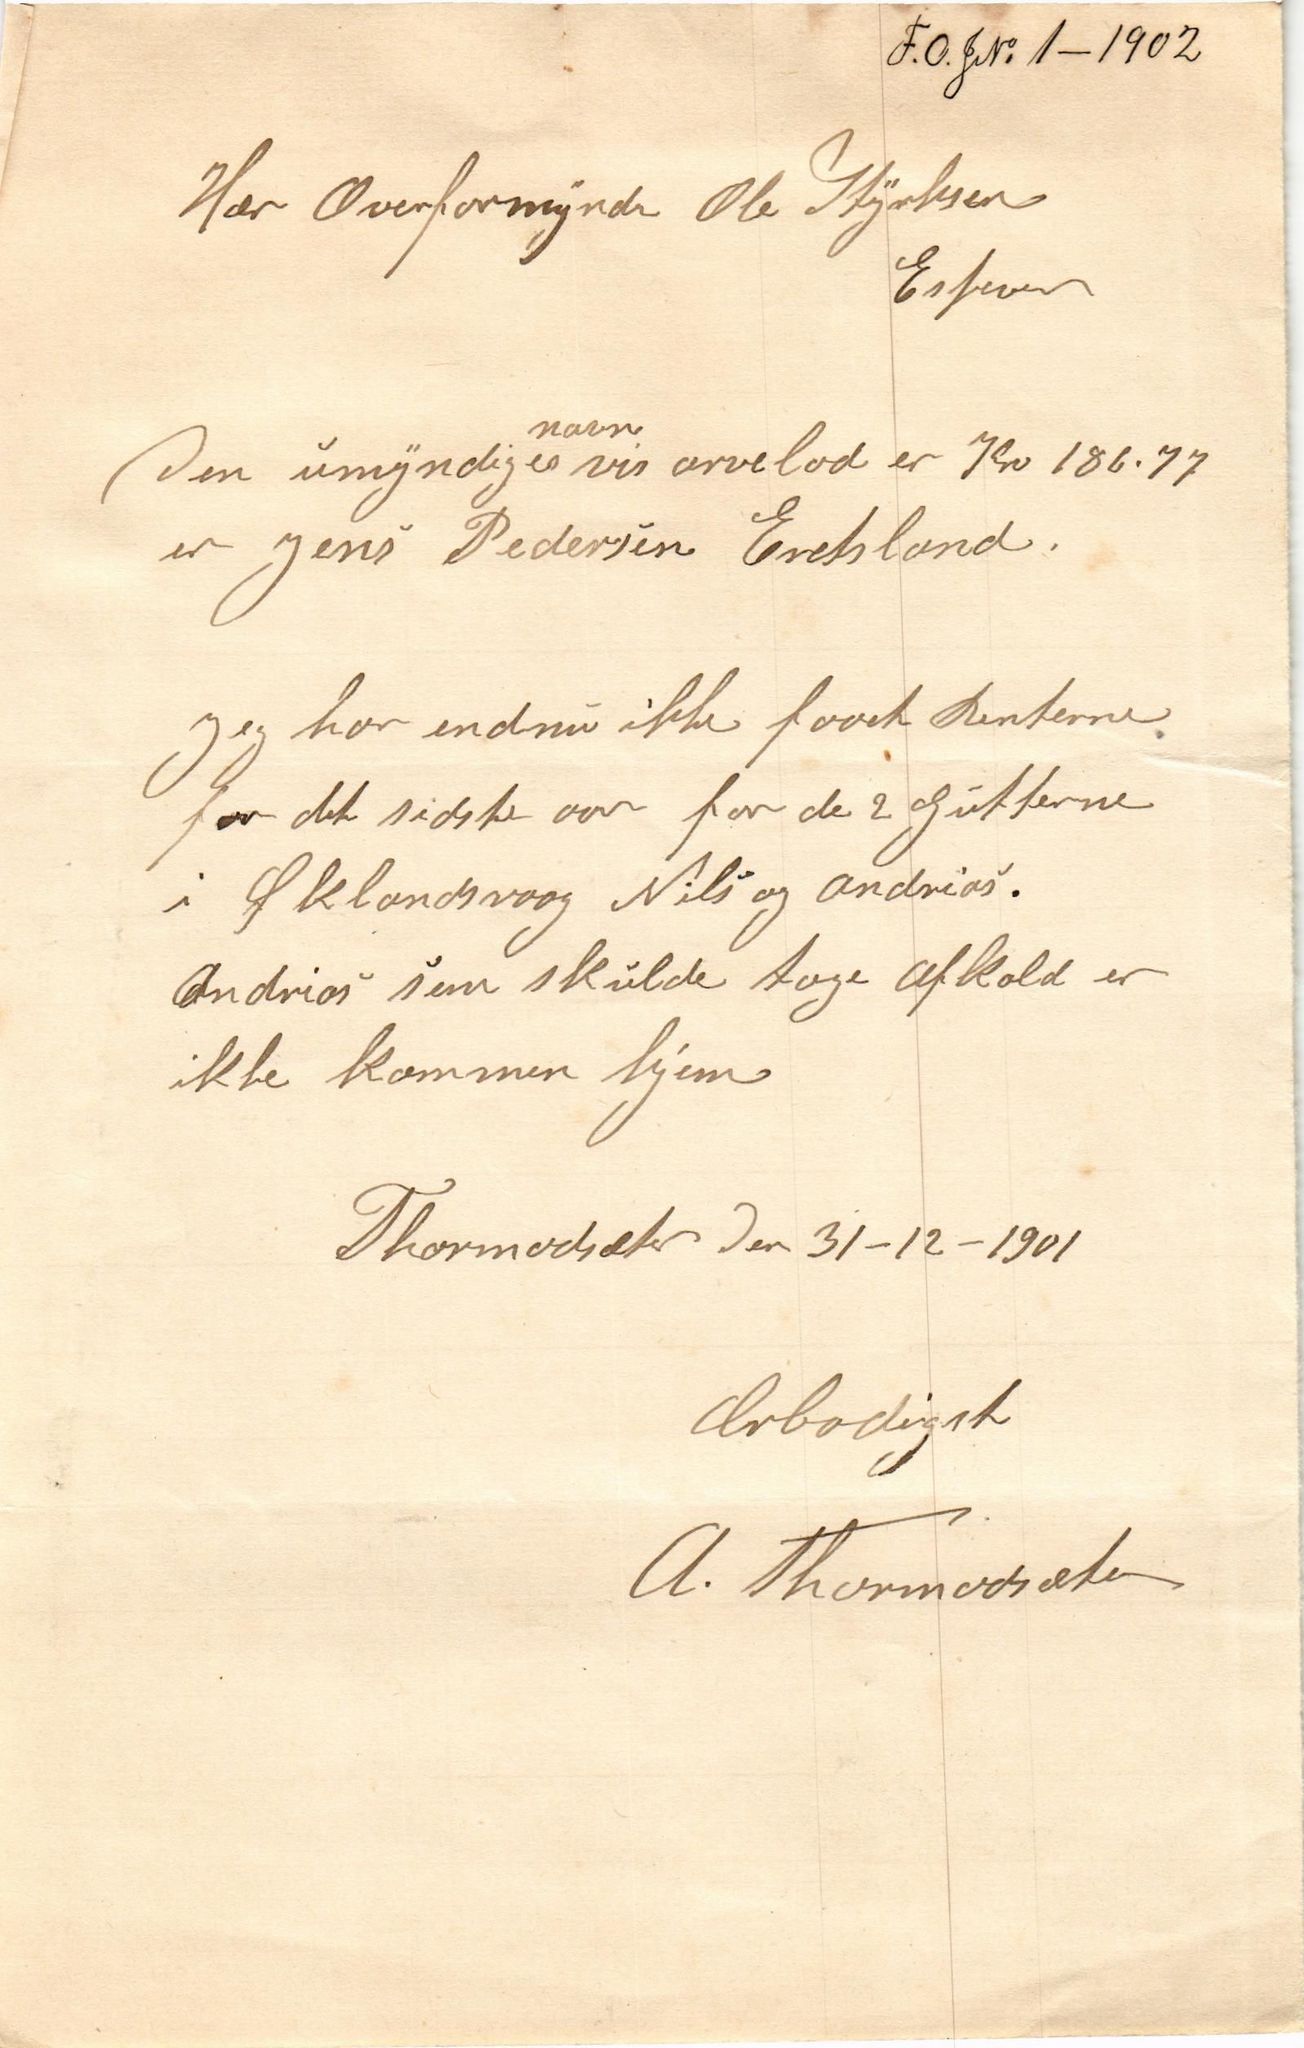 F.O. J№ 1 – 1902
Hær Overformynder Ole Styrksen
Espever
Den umyndiges navn vis arvelod er Kr 186.77
er Jens Pedersen Eretsland.
Jeg har endnu ikke faaet Renterne
for det sidste aar for de 2 Gutterne
i Øklandsvaag Nils og Andrias.
Andrias sem skulde tage Afkald er
ikke kommen hjem
Thormodsæter Den 31-12-1901
Ærbødigst
A. Thormodsæter